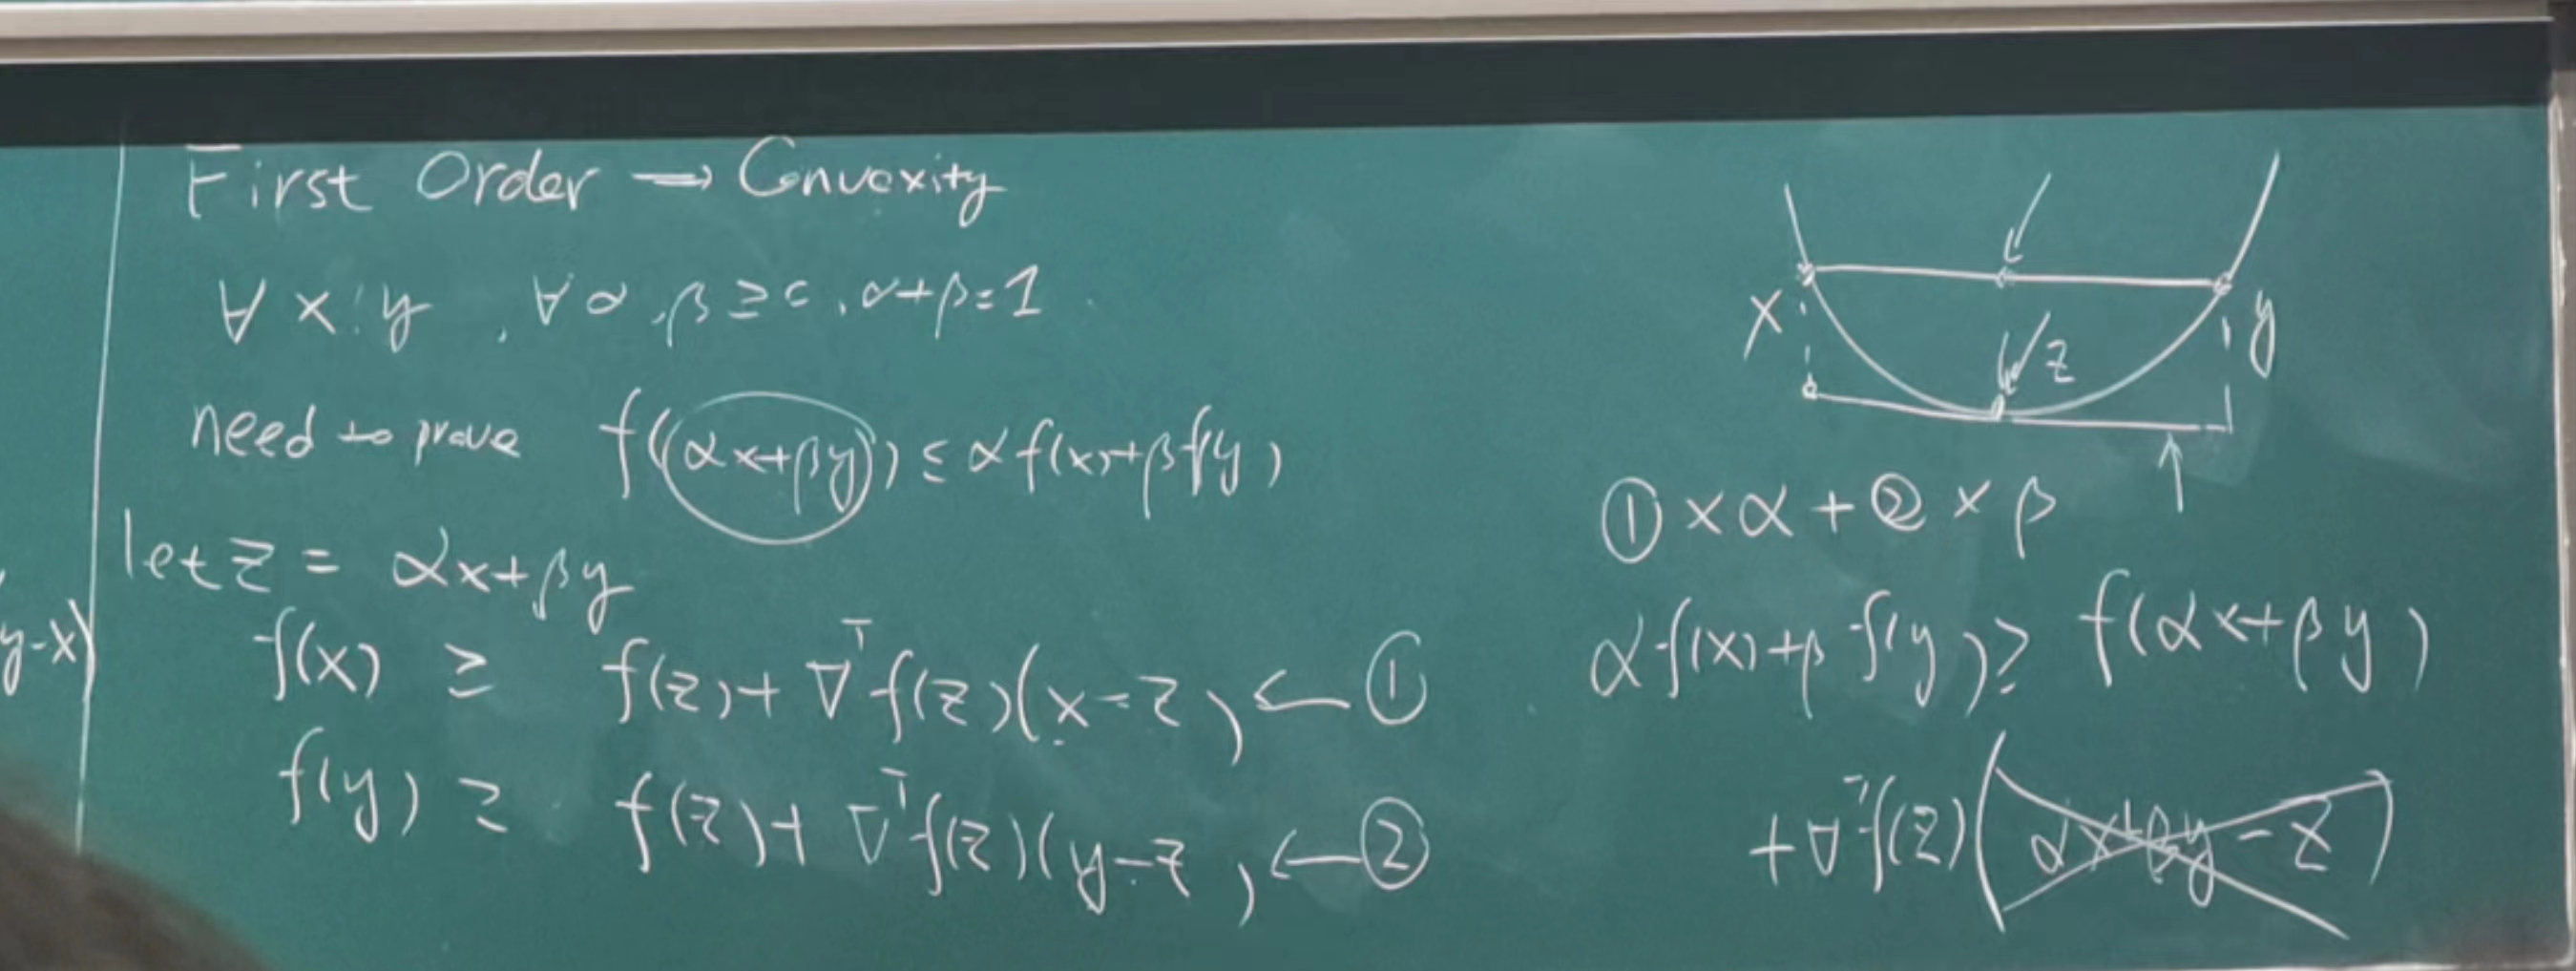 First Order → Convexity
∀ x, y , ∀ α, β ≥ 0, α+β=1
need to prove f(αx+βy) ≤ αf(x)+βf(y)
let z = αx+βy
f(x) ≥ f(z)+ ∇ᵀf(z)(x-z) ← ①
f(y) ≥ f(z)+ ∇ᵀf(z)(y-z) ← ②
y-x)
x
z
y
① × α + ② × β
αf(x)+βf(y) ≥ f(αx+βy)
+∇ᵀf(z)(αx+βy-z)